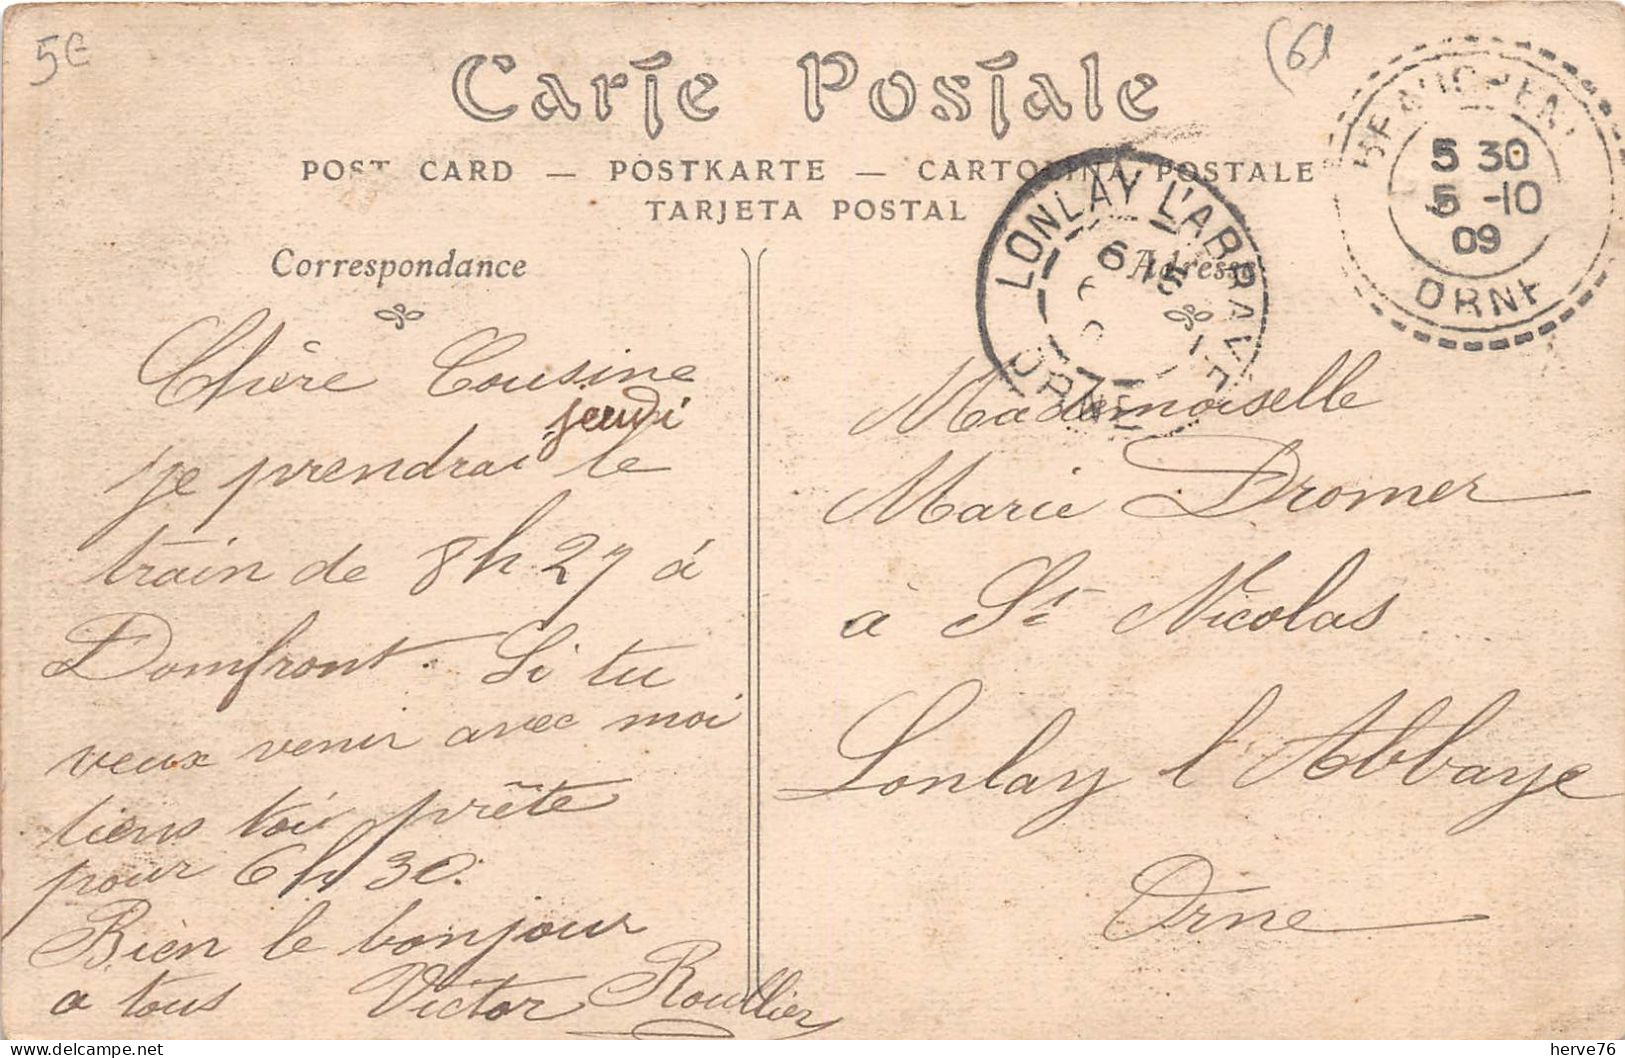 5€
(61
Carte Postale
POST CARD — POSTKARTE — CARTOLINA POSTALE
TARJETA POSTAL
LONLAY L'ABBAYE
6 15
ORNE
5 30
5 -10
09
ORNE
Correspondance
Adresse
Chère Cousine
jeudi
je prendrai le
train de 8h 27 à
Domfront. Si tu
veux venir avec moi
tiens toi prête
pour 6h 30.
Bien le bonjour
a tous Victor Roullier
Mademoiselle
Marie Dromer
à St Nicolas
Lonlay l'Abbaye
Orne
herve76